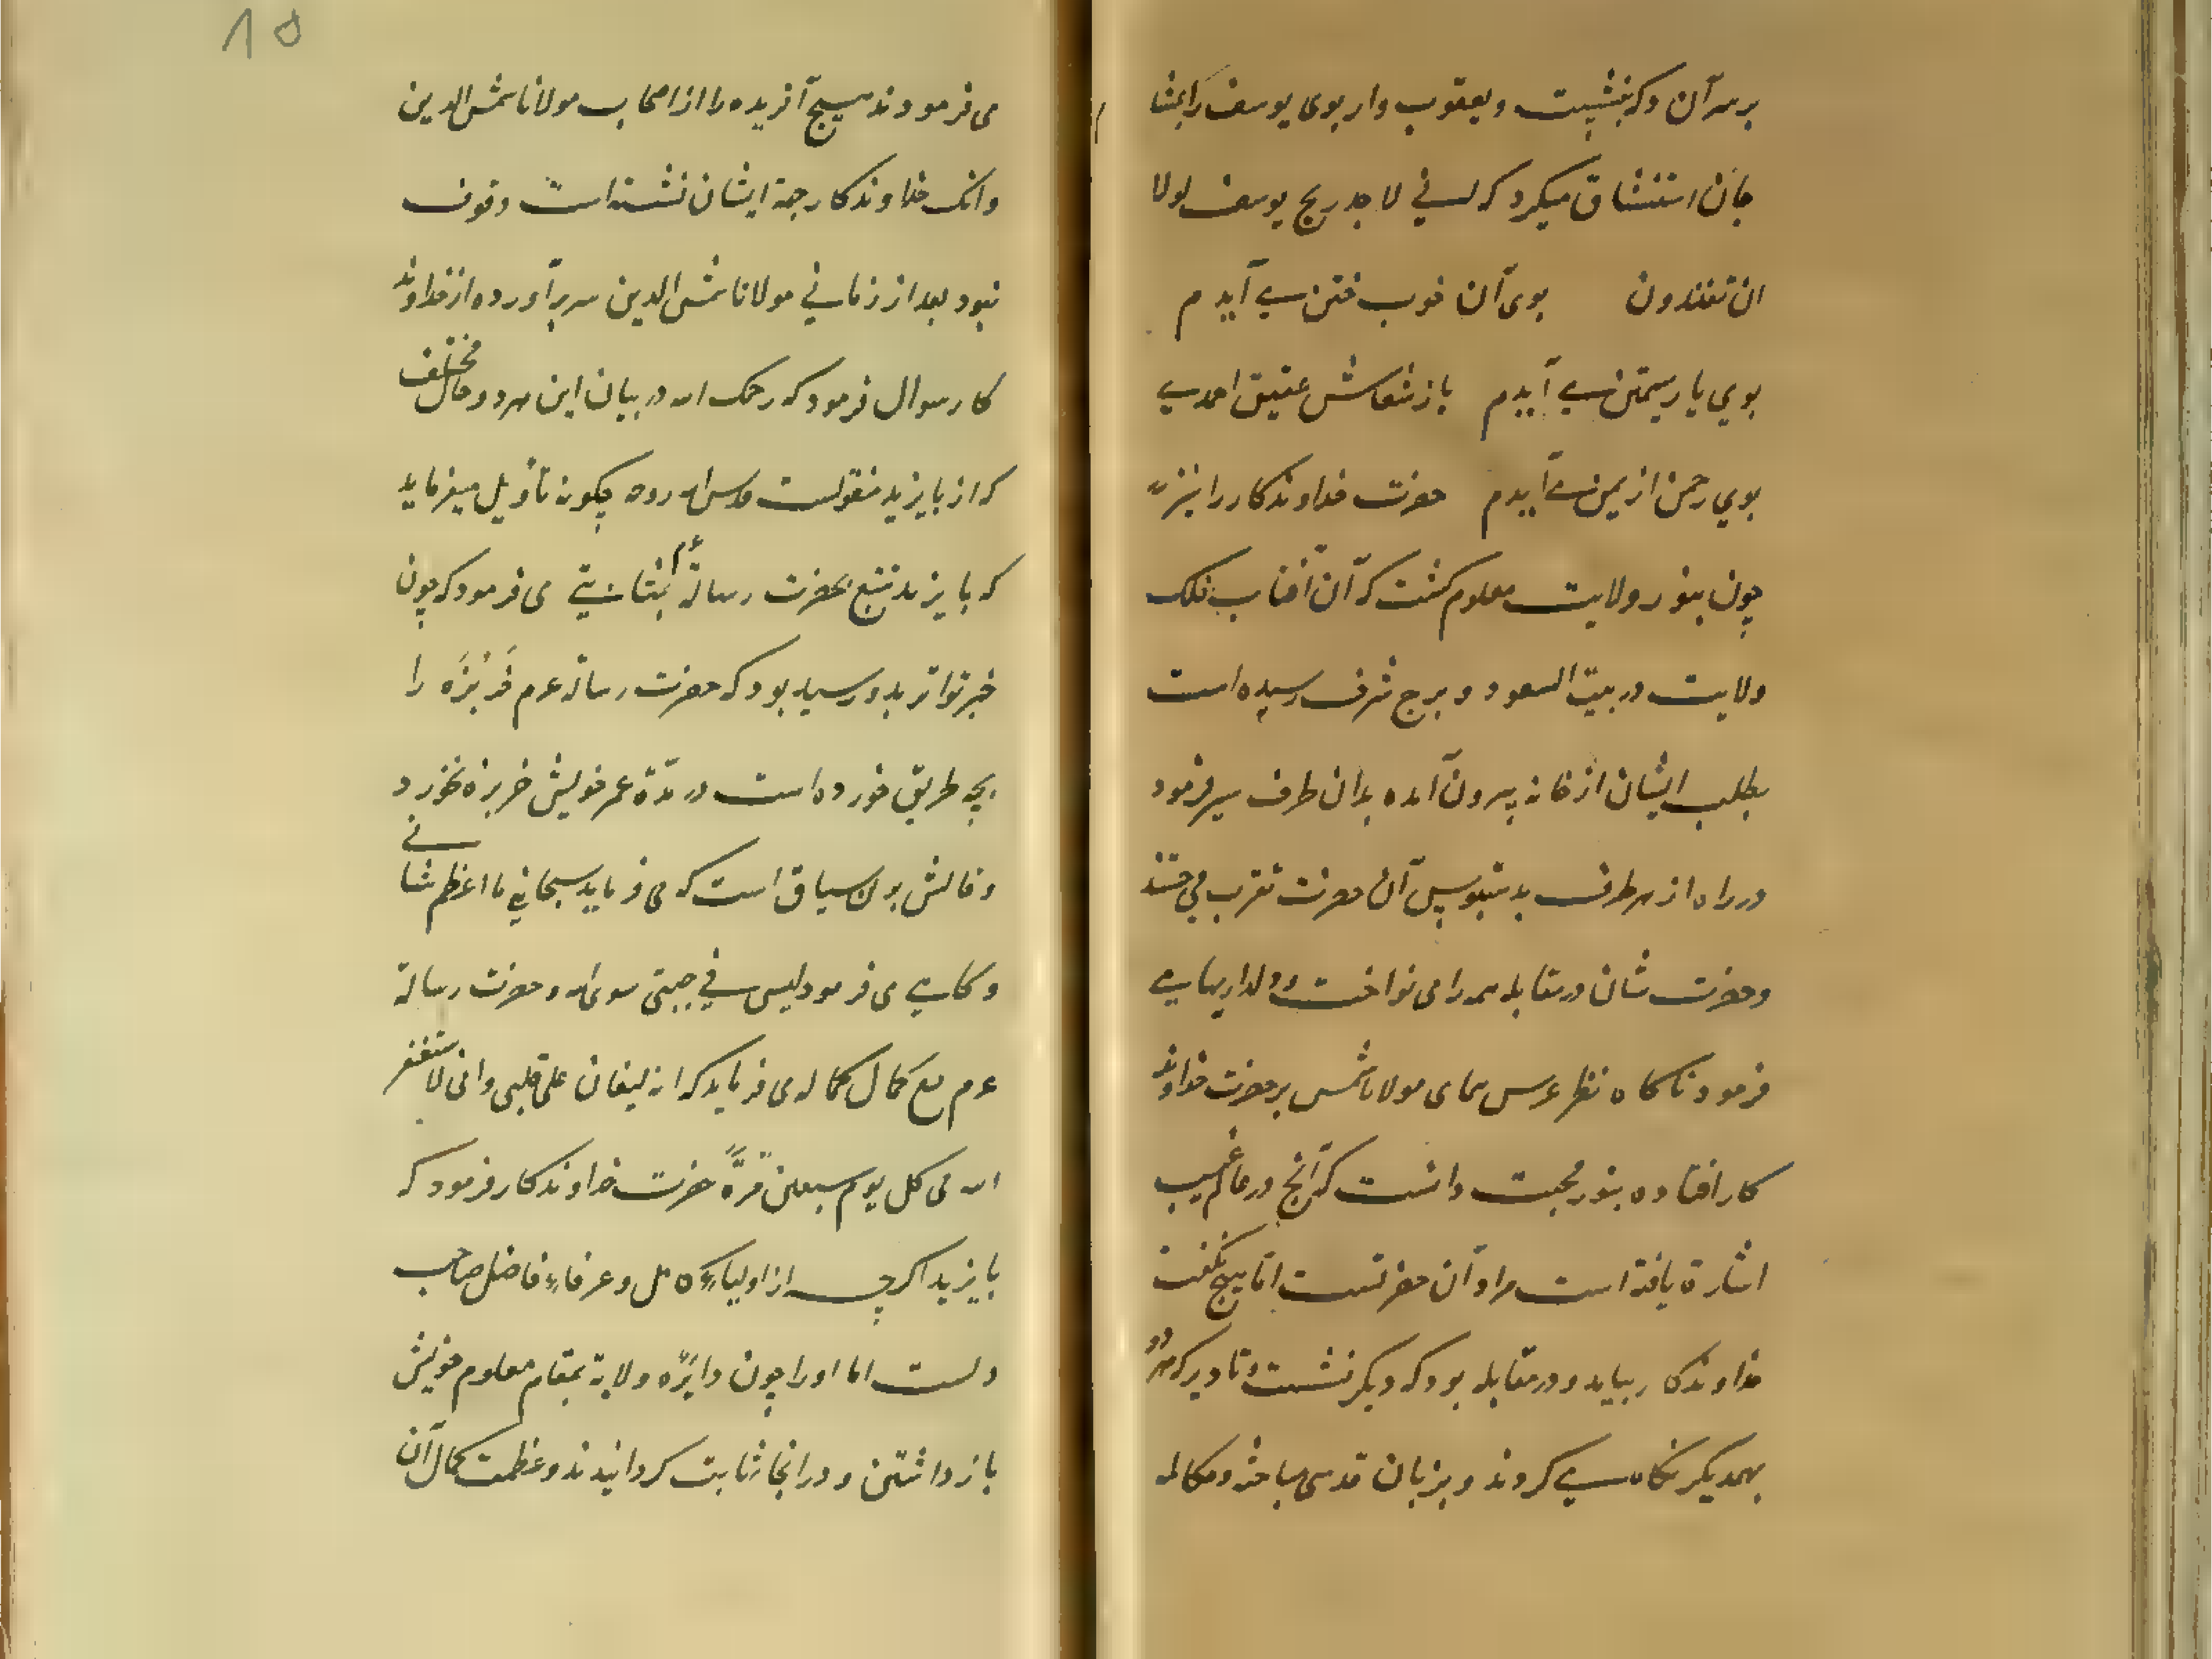 بر سر آن دکه بنشست و یعقوب وار بوی یوسف را بمشا
جان استنشاق میکرد که انی لاجد ریح یوسف لولا
ان تفندون بوی آن خوب ختن می آیدم
بوی یار سیمتن می آیدم باز شعاش عقیق احمدی
بوی رحمن از یمن می آیدم حضرت خداوندکار را نیز
چون بنور ولایت معلوم کشت که آن آفتاب فلک
ولایت در بیت السعود و برج شرف رسیده است
بطلب ایشان از خانه بیرون آمده بدان طرف میفرمود
در راه از هر طرف بدستبوس آن حضرت تقرب می جستند
و حضرت شان در مقابله همه را می نواخت و دلداریهای
فرمود ناکاه نظر عرس سمای مولانا شمس بر حضرت خداوند
کار افتاده بنور محبت دانست که آنچ در عالم غیب
اشارة یافته است مراد آن حضرتست اما هیچ نکفت
خداوندکار بیامد و در مقابله بود که دیکر نشست و تا دیرکه هر دو
بهمدیکر نکاه می کردند و بزبان قدسی مباحثه و مکالمه
10
می فرمودند هیچ آفریده را از اصحاب مولانا شمس الدین
وانک خداوندکار جهة ایشان نشسته است وقوف
نبود بعد از زمانی مولانا شمس الدین سر برآورده از خداوند
کار سوال فرمود که رحمک الله در بیان این هر دو حال مختلف
که از بایزید منقولست قدس الله روحه چکونه تأویل میفرماید
که بایزید تتبع بحضرت رسالة عم بمثابتی می فرمود که چون
خبر تواتر بدو رسیده بود که حضرت رسالة عم خربزه را
بچه طریق خورده است در مدة عمر خویش خربزه نخورد
و حالش بدان سیاق است که می فرماید سبحانی ما اعظم شانی
و کاهی می فرمود لیس فی جبتی سوی الله و حضرت رسالة
عم مع کمال کماله می فرماید که انه لیغان علی قلبی و انی لاستغفر
الله فی کل یوم سبعین مرة حضرت خداوندکار فرمود که
بایزید اکرچه از اولیاء کامل و عرفاء فاضل صاحب
دلست اما او را چون دایره ولایة بمقام معلوم خویش
باز داشتن و در انجا ثابت کردانیدند و عظمت کمال آن